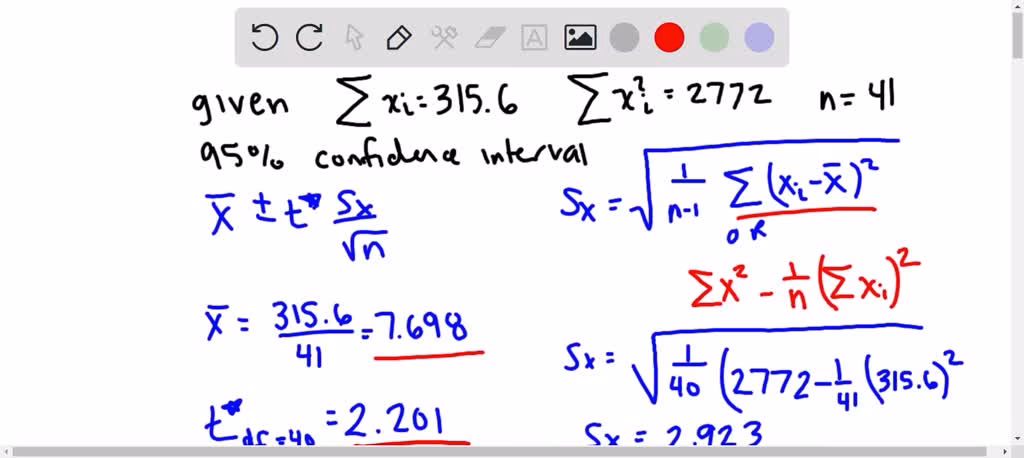 A
given ∑ xi = 315.6 ∑ xi² = 2772 n = 41
95% confidence interval
x̄ ± t* Sx/√n
Sx = √(1/(n-1) ∑ (xi - x̄)²
OR
∑x² - 1/n (∑ xi)²
x̄ = 315.6/41 = 7.698
Sx = √(1/40 (2772 - 1/41 (315.6)²
t* df=40 = 2.201
Sx = 2.923